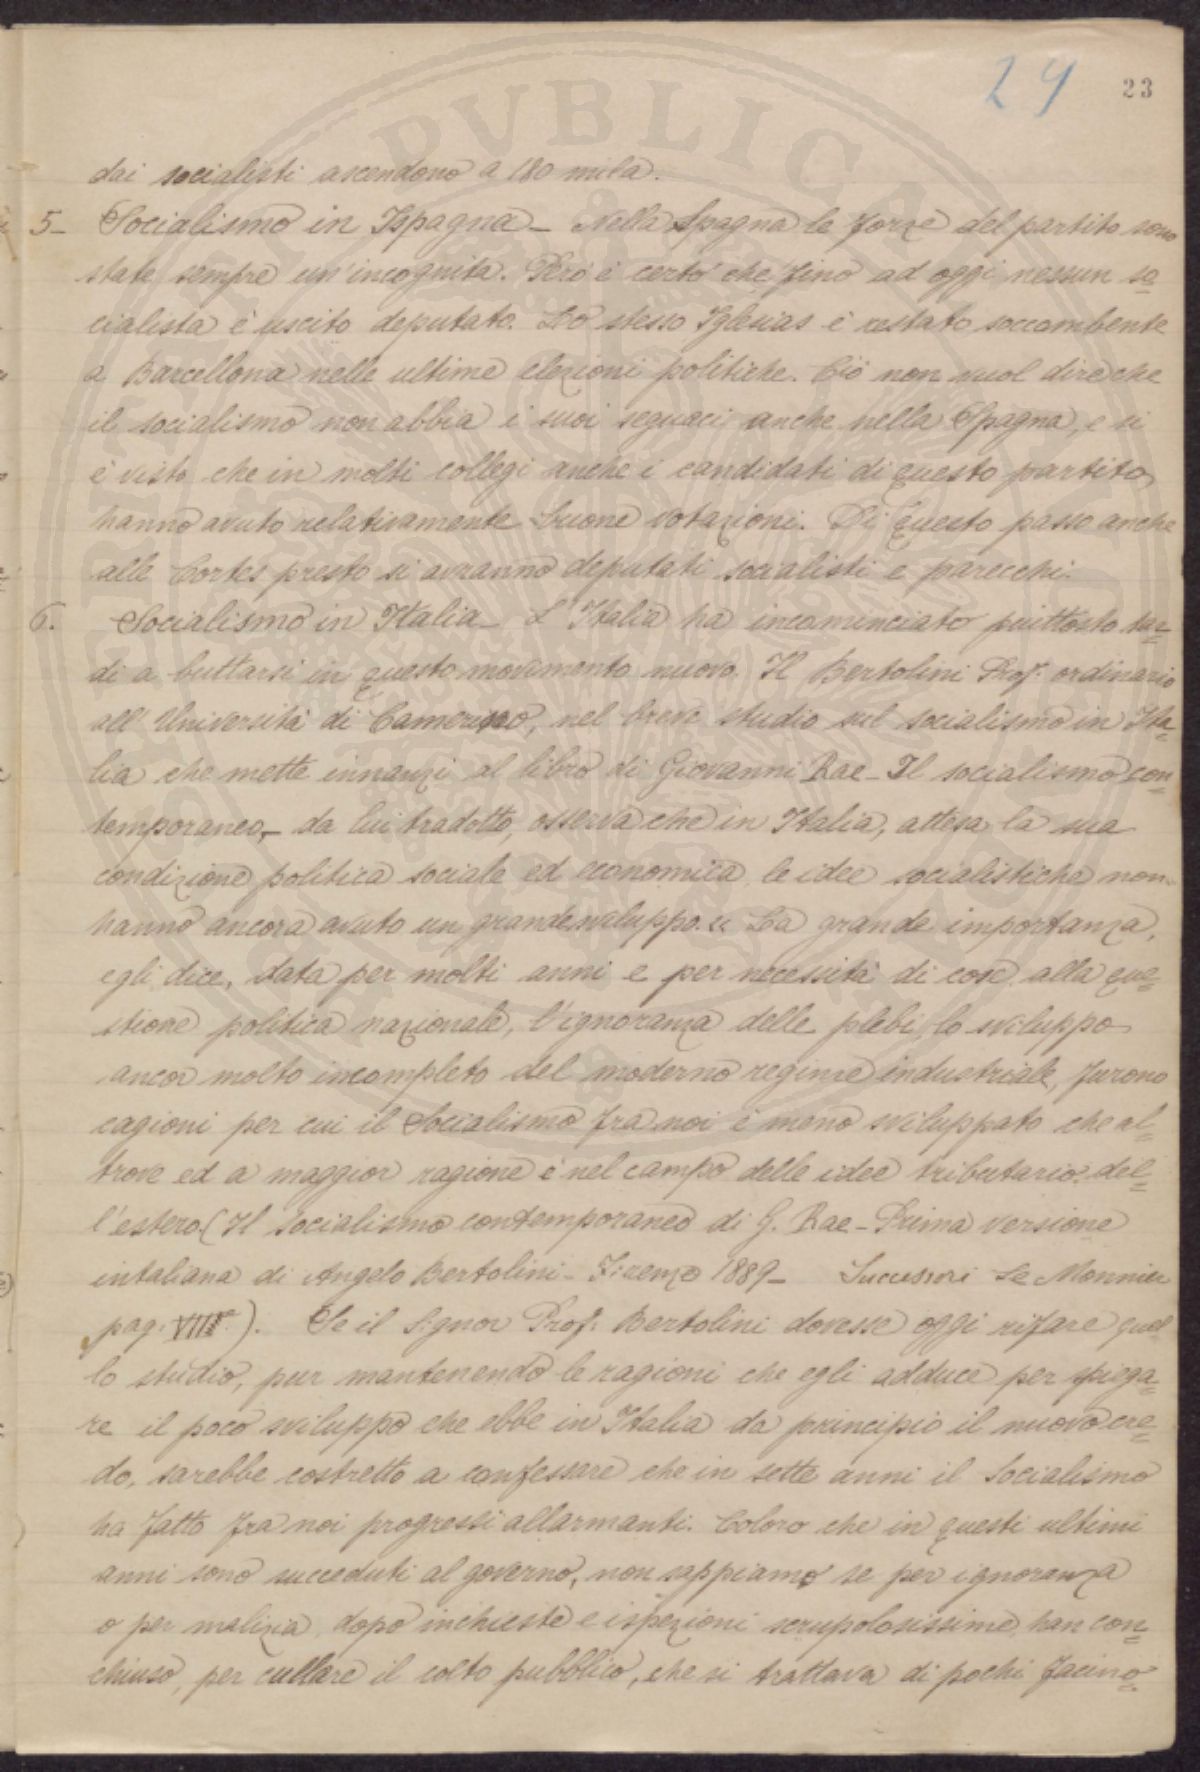 24 23
dai socialisti ascendono a 180 mila.
5- Socialismo in Ispagna - Nella Spagna le forze del partito sono
state sempre un'incognita. Però è certo che fino ad oggi nessun so=
cialista è uscito deputato. Lo stesso Iglesias è restato soccombente
a Barcellona nelle ultime elezioni politiche. Ciò non vuol dire che
il socialismo non abbia i suoi seguaci anche nella Spagna, e si
è visto che in molti collegi anche i candidati di questo partito
hanno avuto relativamente buone votazioni. Di questo passo anche
alle Cortes presto si avranno deputati socialisti e parecchi.
6. Socialismo in Italia - L'Italia ha incominciato piuttosto tar=
di a buttarsi in questo movimento nuovo. Il Bertolini Prof. ordinario
all'Università di Camerino, nel breve studio sul socialismo in Ita=
lia che mette innanzi al libro di Giovanni Rae - Il socialismo con=
temporaneo - da lui tradotto, osserva che in Italia, attesa la sua
condizione politica sociale ed economica le idee socialistiche non
hanno ancora avuto un grande sviluppo. « La grande importanza,
egli dice, data per molti anni e per necessità di cose alla que=
stione politica nazionale, l'ignoranza delle plebi, lo sviluppo
ancor molto incompleto del moderno regime industriale, furono
cagioni per cui il Socialismo fra noi è meno sviluppato che al=
trove ed a maggior ragione è nel campo delle idee tributario del=
l'estero (Il socialismo contemporaneo di G. Rae - Prima versione
intaliana di Angelo Bertolini - Firenze 1889 - Successori Le Monnier
pag. VIII). Se il Signor Prof. Bertolini dovesse oggi rifare quel
lo studio, pur mantenendo le ragioni che egli adduce per spiega=
re il poco sviluppo che ebbe in Italia da principio il nuovo cre=
do, sarebbe costretto a confessare che in sette anni il Socialismo
ha fatto fra noi progressi allarmanti. Coloro che in questi ultimi
anni sono succeduti al governo, non sappiamo se per ignoranza
o per malizia, dopo inchieste e ispezioni scrupolosissime han con=
chiuso, per cullare il colto pubblico, che si trattava di pochi facino=